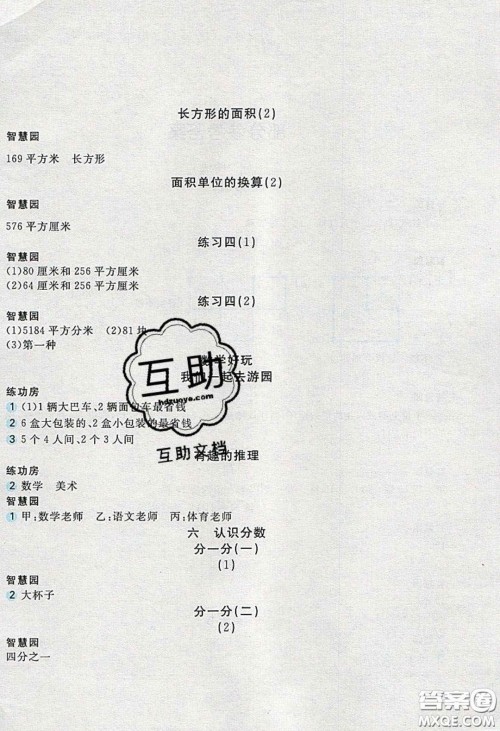 长方形的面积(2)
智慧园
169 平方米　长方形
面积单位的换算(2)
智慧园
576 平方厘米
练习四(1)
智慧园
(1)80 厘米和 256 平方厘米
(2)64 厘米和 256 平方厘米
练习四(2)
智慧园
(1)5184 平方分米　(2)81 块
(3)第一种
数学好玩
我们一起去游园
练功房
1 (1)1 辆大巴车、2 辆面包车最省钱
2 6 盒大包装的、2 盒小包装的最省钱
3 5 个 4 人间、2 个 3 人间
有趣的推理
练功房
2 数学　美术
智慧园
1 甲:数学老师　乙:语文老师　丙:体育老师
六　认识分数
分一分(一)
(1)
智慧园
2 大杯子
分一分(二)
(2)
智慧园
四分之一
互助
hdzuoye.com
互助文档
答案圈
MXQE.COM